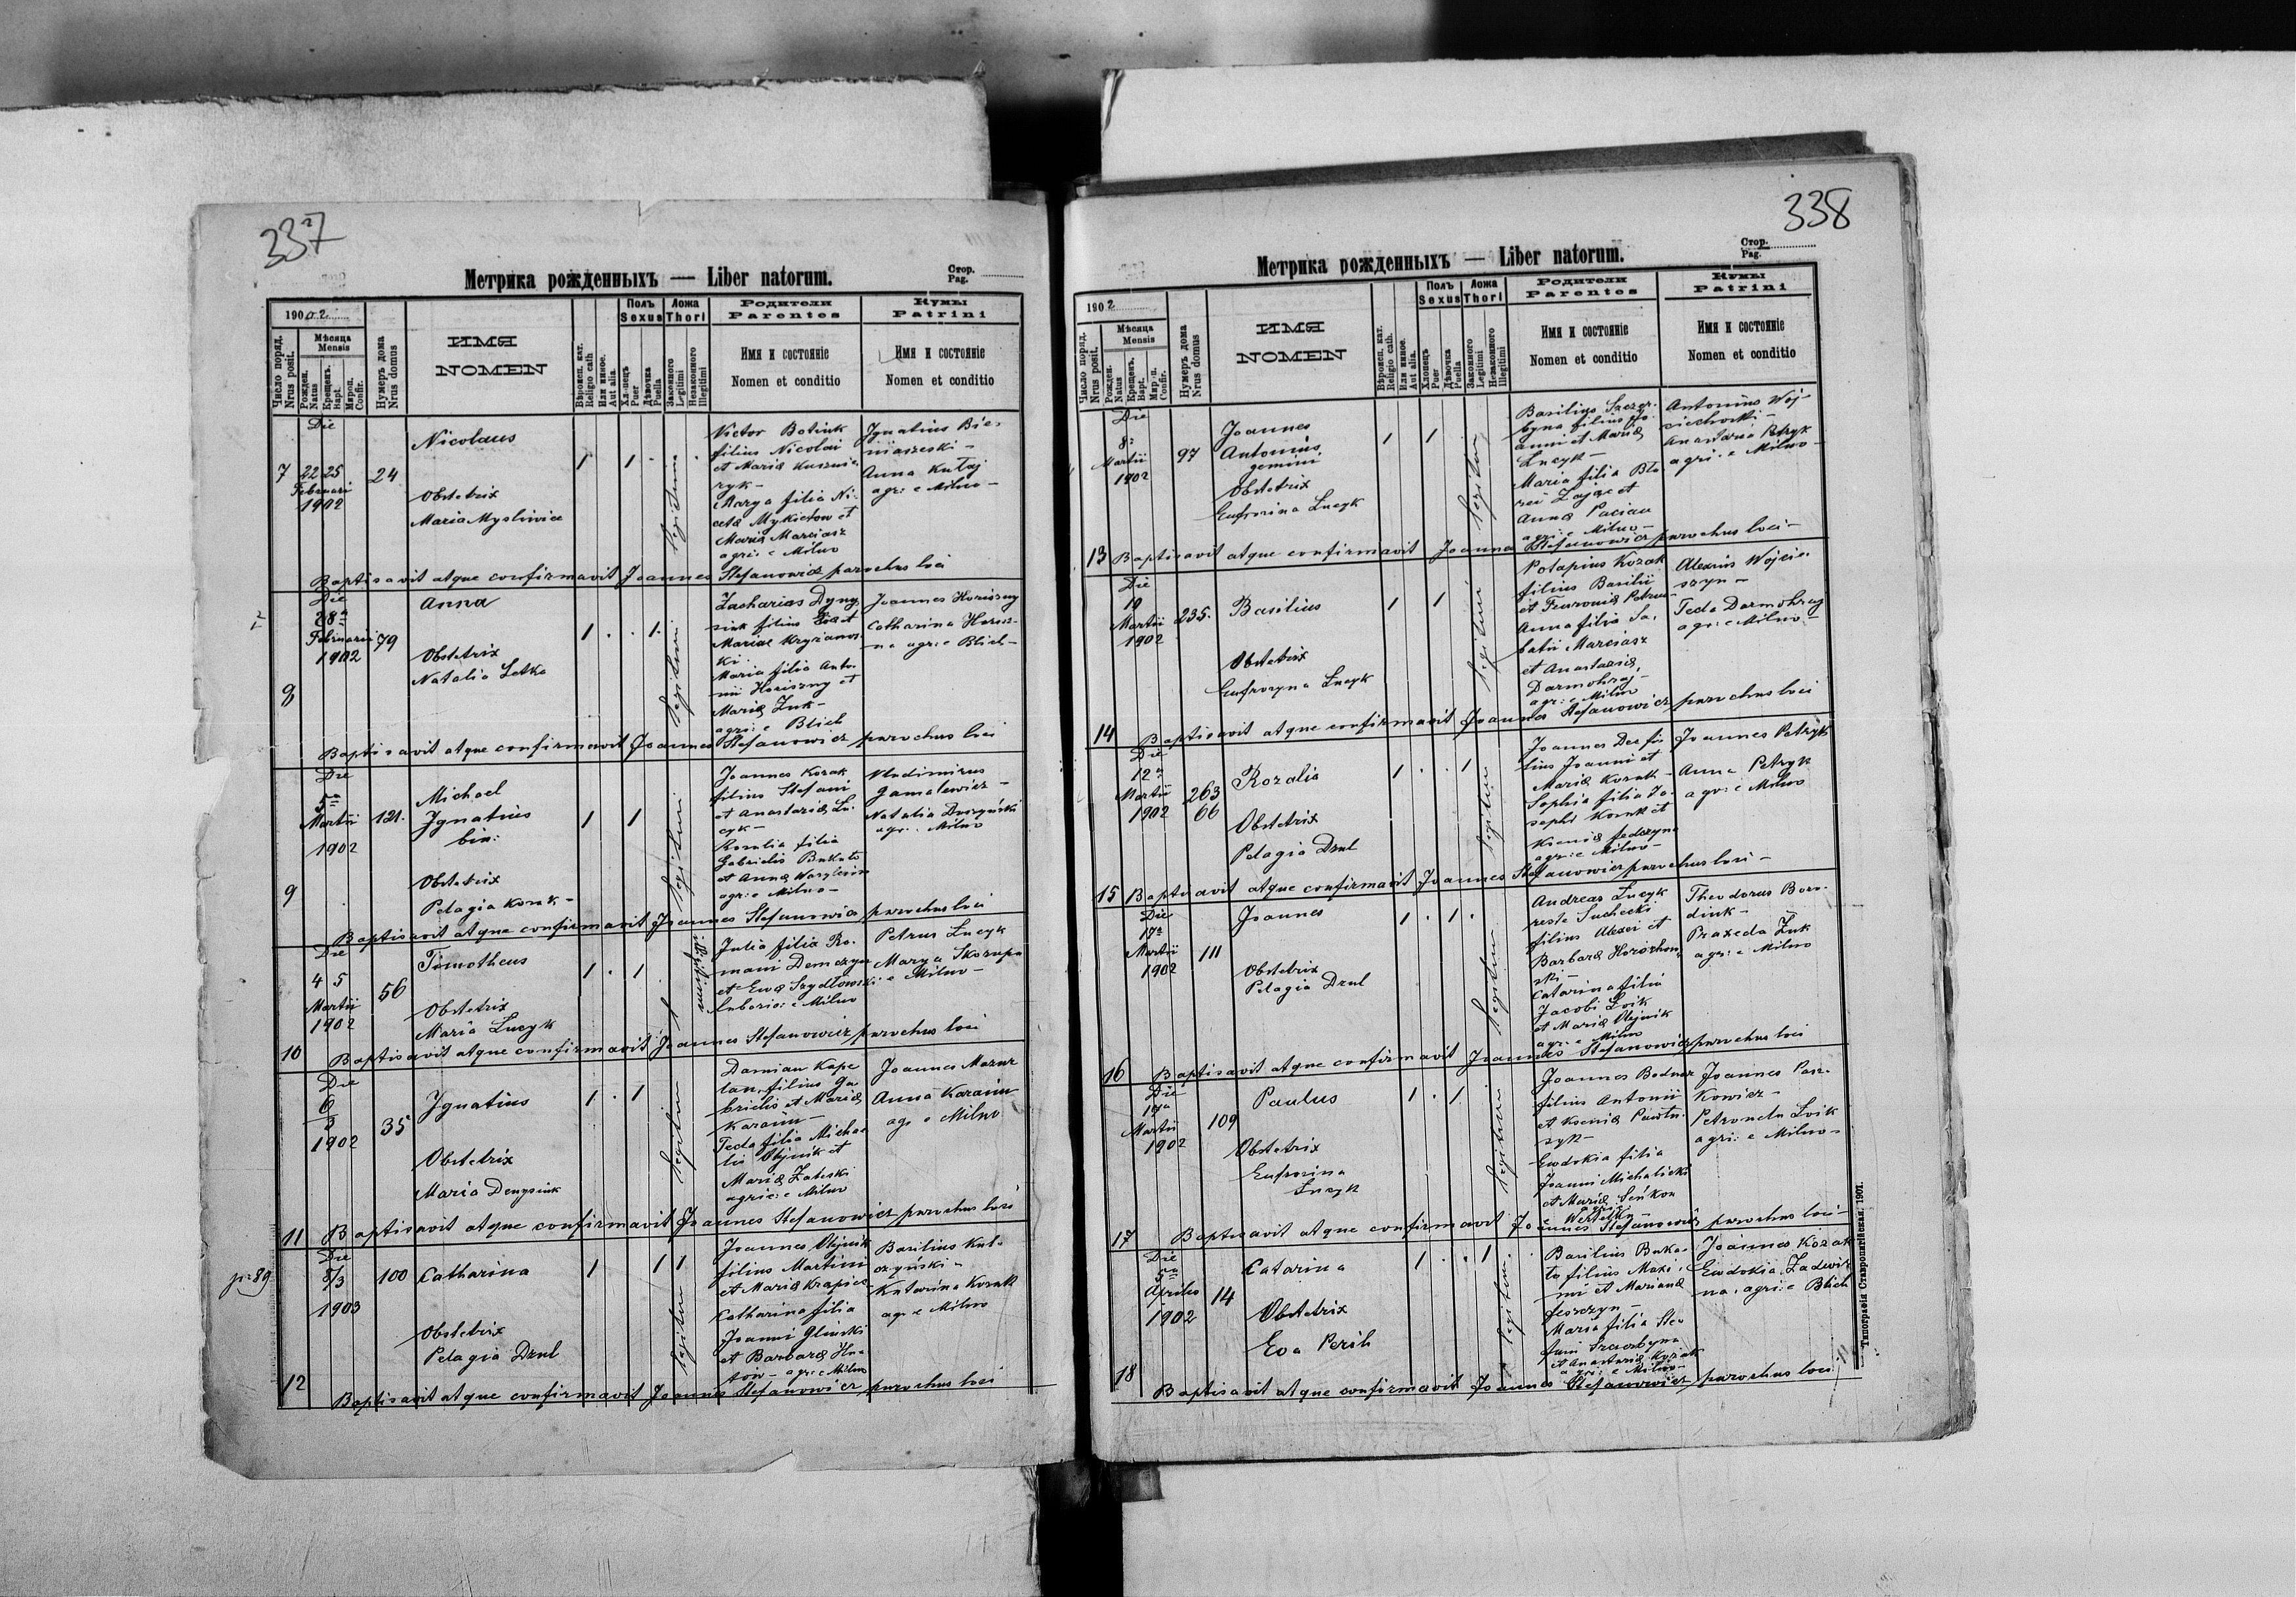 337
Метрика рожденныхъ — Liber natorum.
Стор.
Pag.
1902
Число поряд.
Nrus posit.
Мѣсяца
Mensis
Рожден.
Natus
Крещенъ.
Bapt.
Confir.
Нумеръ дома
Nrus domus
ИМЯ
NOMEN
Вѣроисп. кат.
Religio cath
Или иное.
Aut alia.
Полъ
Sexus
Puer
Дѣвочка
Puella
Ложа
Thori
Законного
Legitimi
Незаконного
Illegitimi
Родители
Parentes
Имя и состояніе
Nomen et conditio
Кумы
Patrini
Имя и состояніе
Nomen et conditio
7
Die
22 25
Februari
1902
24
Nicolaus
Obstetrix
Maria Mysliwiec
1 1
legitimi
Victor Botiuk
filius Nicolai
et Mariæ Kuszni-
ryk -
Marya filia Ni-
cetæ Mykietow et
Mariæ Marciasz
agri: e Milno
Ignatius Bie-
niaszeski -
Anna Kutaj
agr: e Milno -
Baptisavit atque confirmavit Joannes Stefanowicz parochus loci
8
Die
28a
Februarii
1902
79
Anna
Obstetrix
Natalia Letka
1 1
legitimi
Zacharias Dyny
siuk filius
Mariae Kryzanow-
ki
Maria filia Anto-
nii Horiszny et
Mariæ Żuk -
agri: e Blich
Joannes Horiszny
Catharina Horisz-
na agr: e Blich -
Baptisavit atque confirmavit Joannes Stefanowicz parochus loci
9
Die
5a
Martii
1902
121.
Michael
Ignatius
bin:
Obstetrix
Pelagia Kozak -
1 1
legitimi
Joannes Kozak
filius Stefani
et Anastasiæ Łu-
cyk -
Rosalia filia
Gabrielis Bukata
et Annæ
agr: e Milno -
Vladimirus
Gamalewicz -
Natalia Duszyński
agr: Milno
Baptisavit atque confirmavit Joannes Stefanowicz parochus loci
10
Die
4 5
Martii
1902
56
Timotheus
Obstetrix
Maria Łucyk
1 1
illegitimi
1
Julia filia Ro-
mani Demczyna
et Ewa Szydłowski
laborio: e Milno
Petrus Łucyk
Marya Skorupa
e Milno -
Baptisavit atque confirmavit Joannes Stefanowicz parochus loci
11
Die
6
3
1902
35
Ignatius
Obstetrix
Maria Denysiuk
1 1
legitimi
Damian Kape
lan, filius Ga
brielis et Mariæ
Karaim -
Tecla filia Micha-
lis Olejnik et
Mariæ Zaleski
agric: e Milno
Joannes Mazur
Anna Karaim
agr e Milno
Baptisavit atque confirmavit Joannes Stefanowicz parochus loci
12
Die
8/3
1903
100
Catharina
Obstetrix
Pelagia Dzul
1 1 1
legitimi
Joannes Olejnik
filius Martini
et Mariæ Krapiec
Catharina filia
Joanni Glinski
et Barbaræ Hna-
tów - agr: e Milno
Basilius Kul-
czyński -
Katarina Kozak
agr: e Milno
Baptisavit atque confirmavit Joannes Stefanowicz parochus loci
338
Метрика рожденныхъ — Liber natorum.
Стор.
Pag.
1902
Число поряд.
Nrus posit.
Мѣсяца
Mensis
Рожден.
Natus
Крещенъ.
Bapt.
Confir.
Нумеръ дома
Nrus domus
ИМЯ
NOMEN
Вѣроисп. кат.
Religio cath.
Или иное.
Aut alia.
Полъ
Sexus
Хлопецъ
Puer
Дѣвочка
Puella
Ложа
Thori
Законного
Legitimi
Незаконного
Illegitimi
Родители
Parentes
Имя и состояніе
Nomen et conditio
Кумы
Patrini
Имя и состояніе
Nomen et conditio
13
Die
8a
Martii
1902
97
Joannes
Antonius
gemini
Obstetrix
Eufrosina Łucyk
1 1
legitimi
Basilius Szczer-
byna filius Jo-
anni et Mariæ
Łucyk -
Maria filia Bła
zei Zając et
Annæ Paciau
agri: e Milno -
Antonius Woj-
ciechoski -
Anastasia Petryk
agri: e Milno -
Baptisavit atque confirmavit Joannes Stefanowicz parochus loci -
14
Die
10
Martii
1902
235.
Basilius
Obstetrix
Eufrozyna Łucyk
1 1
legitimi
Potapius Kozak
filius Basilii
et Fruzoniæ
Anna filia Sa-
batii Marciasz
et Anastasiæ
Darmohraj -
agr: e Milno
Alexius Wojcie-
szyn -
Tecla Darmohraj
agr: e Milno -
Baptisavit atque confirmavit Joannes Stefanowicz parochus loci
15
Die
12a
Martii
1902
263
66
Rozalia
Obstetrix
Pelagia Dzul
1 1
legitimi
Joannes Dec fi-
lius Joanni et
Mariæ Kozak -
Sophia filia Jo-
sephi Kozak et
Kseniæ Fedczyna
agr: e Milno -
Joannes Petryk
Anna Petryk
agr: e Milno
Baptisavit atque confirmavit Joannes Stefanowicz parochus loci -
16
Die
17a
Martii
1902
111
Joannes
Obstetrix
Pelagia Dzul
1 1
legitimi
Andreas Łucyk
reste Suchecki
filius Alexei et
Barbaræ Horożhow-
ski -
Catarina filia
Jacobi Łoik
et Mariæ Olejnik
agr: e Milno
Theodorus Boro-
diuk -
Praxeda Żuk
agr: e Milno
Baptisavit atque confirmavit Joannes Stefanowicz parochus loci
17
Die
17a
Martii
1902
109
Paulus
Obstetrix
Eufrosina
Łucyk
1 1
legitimi
Joannes Bednar
filius Antonii
et Kseniæ Pawłu-
syk -
Ewdokia filia
Joanni Michalicki
et Mariæ Seńkow
Joannes Pasz-
kowicz -
Petronela Łoik
agri: e Milno -
Baptisavit atque confirmavit Joannes Stefanowicz parochus loci -
18
Die
5ta
Aprilis
1902
14
Catarina
Obstetrix
Eva Perih
1 1
legitimi
Basilius Buka-
ta filius Maxi-
mi et Marianæ
Feszczyn -
Maria filia Ste-
fani Szczerbyna
et Anastasiæ Kozak
agri: e Milno -
Joannes Kozak
Ewdokia Zadwir-
na, agri: e Blich
Baptisavit atque confirmavit Joannes Stefanowicz parochus loci
Типографія Ставропигійская, 1901.